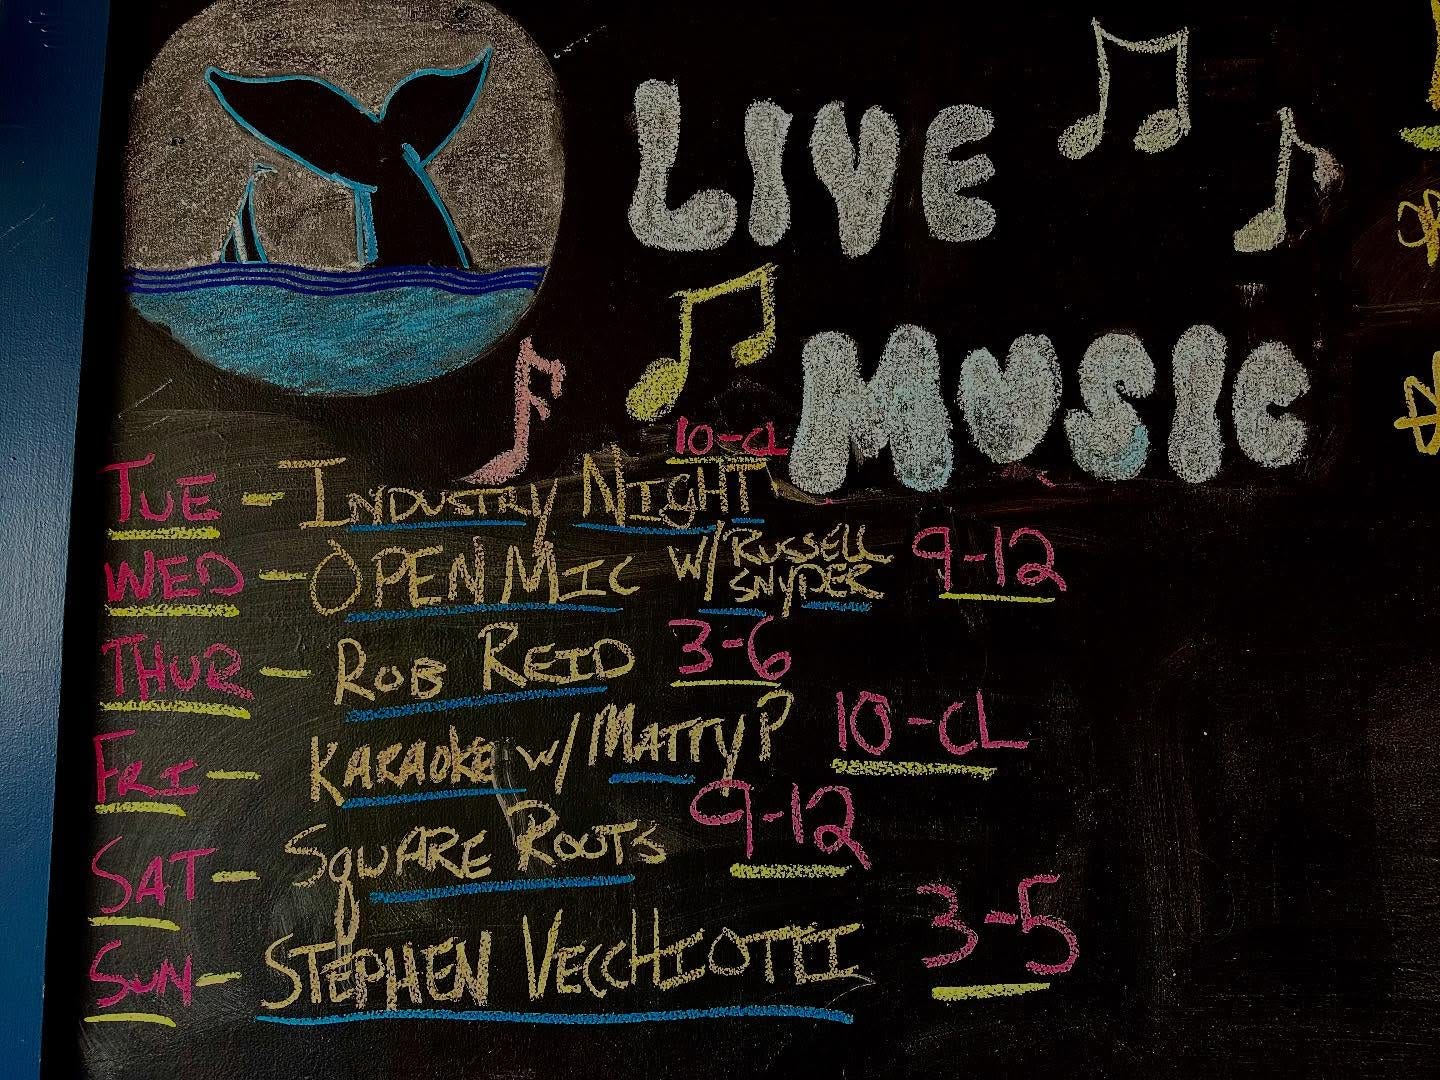 LIVE
MUSIC
TUE - INDUSTRY NIGHT 10-CL
WED - OPEN MIC W/ RUSSELL SNYDER 9-12
THUR - ROB REID 3-6
FRI - KARAOKE W/ MATTY P 10-CL
SAT - SQUARE ROOTS 9-12
SUN - STEPHEN VECCHIOTTI 3-5